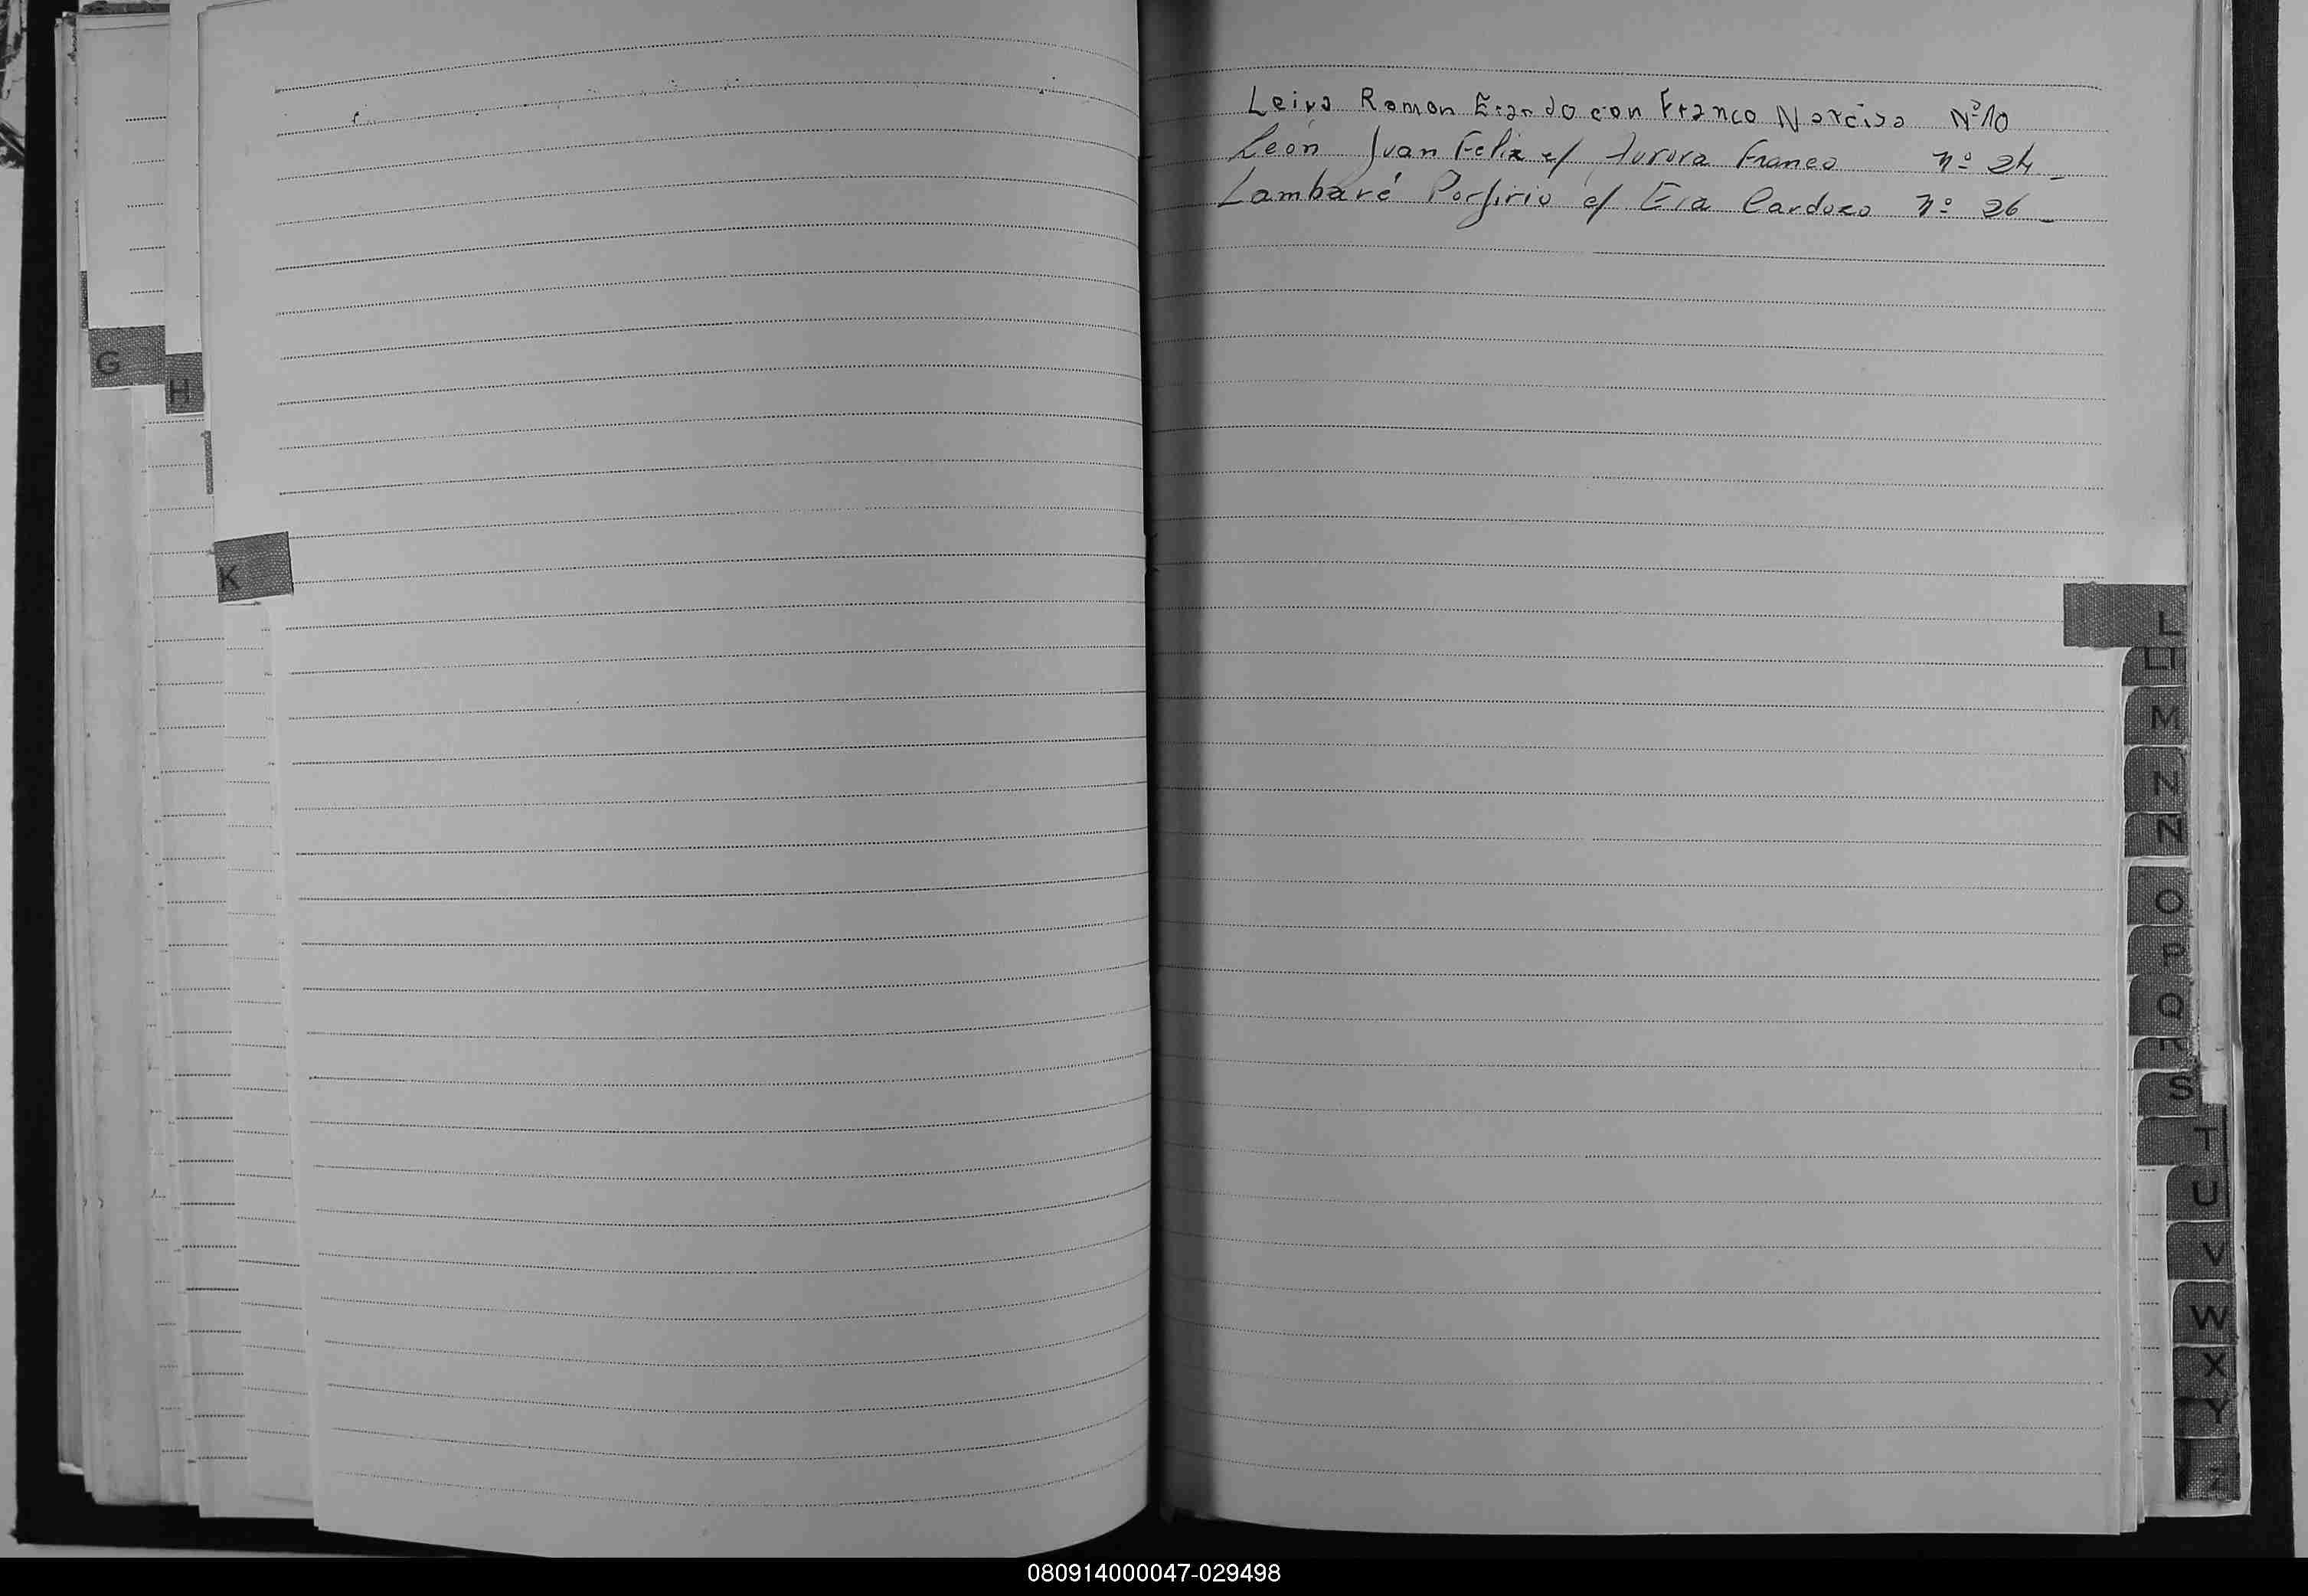 Leiva Ramon Erando con Franco Narcisa Nº 10
León Juan Felix c/ Aurora Franco nº 24 -
Lambaré Porfirio c/ Eva Cardozo nº 26 -
G
H
K
L
LL
M
N
Ñ
O
P
Q
R
S
T
U
V
W
X
Y
Z
080914000047-029498